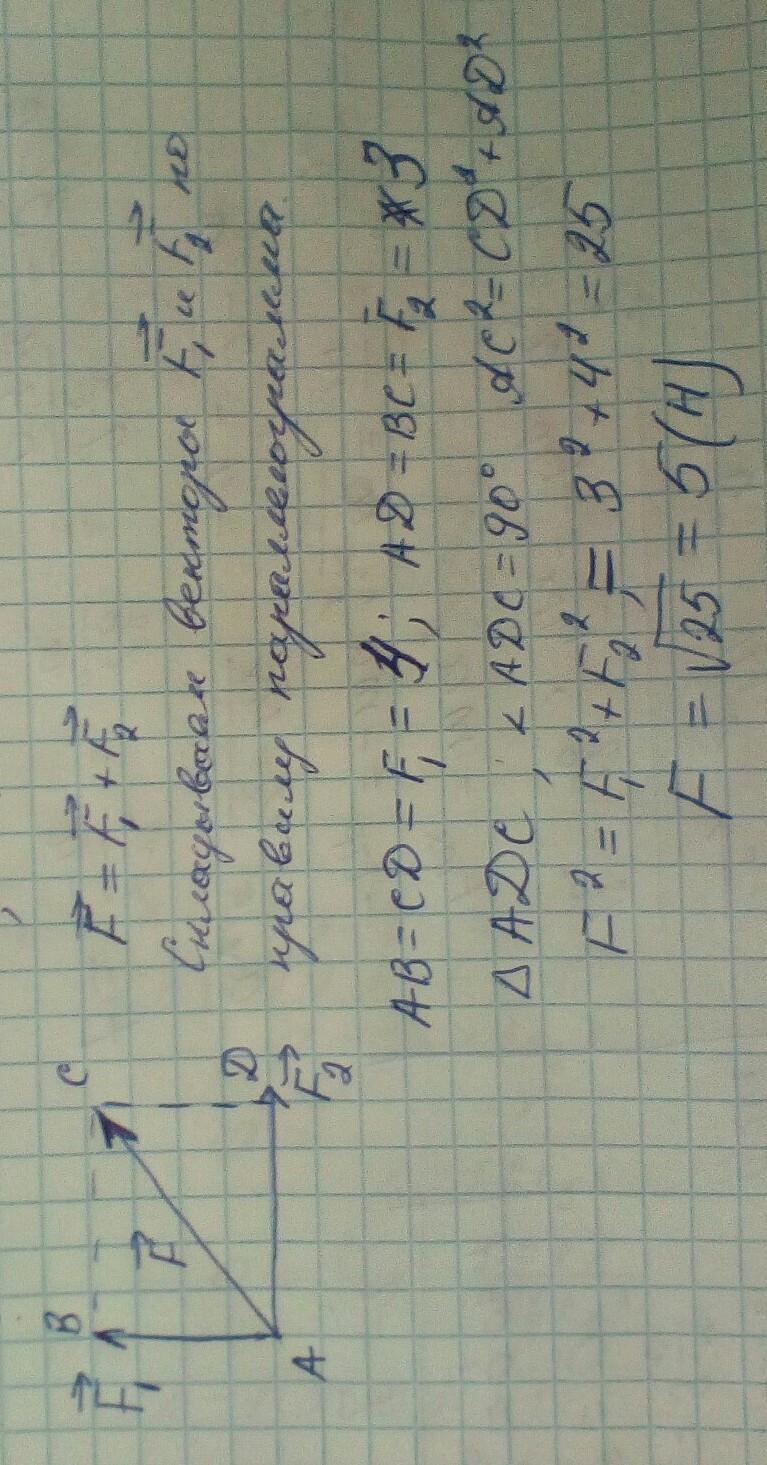 F⃗₁
B
C
F⃗
A
D
F⃗₂
F⃗ = F⃗₁ + F⃗₂
Складываем векторы F⃗₁ и F⃗₂ по
правилу параллелограмма.
AB = CD = F₁ = 4; AD = BC = F₂ = 3
△ ADC, < ADC = 90° AC² = CD² + AD²
F² = F₁² + F₂², = 3² + 4² = 25
F = √25 = 5 (Н)